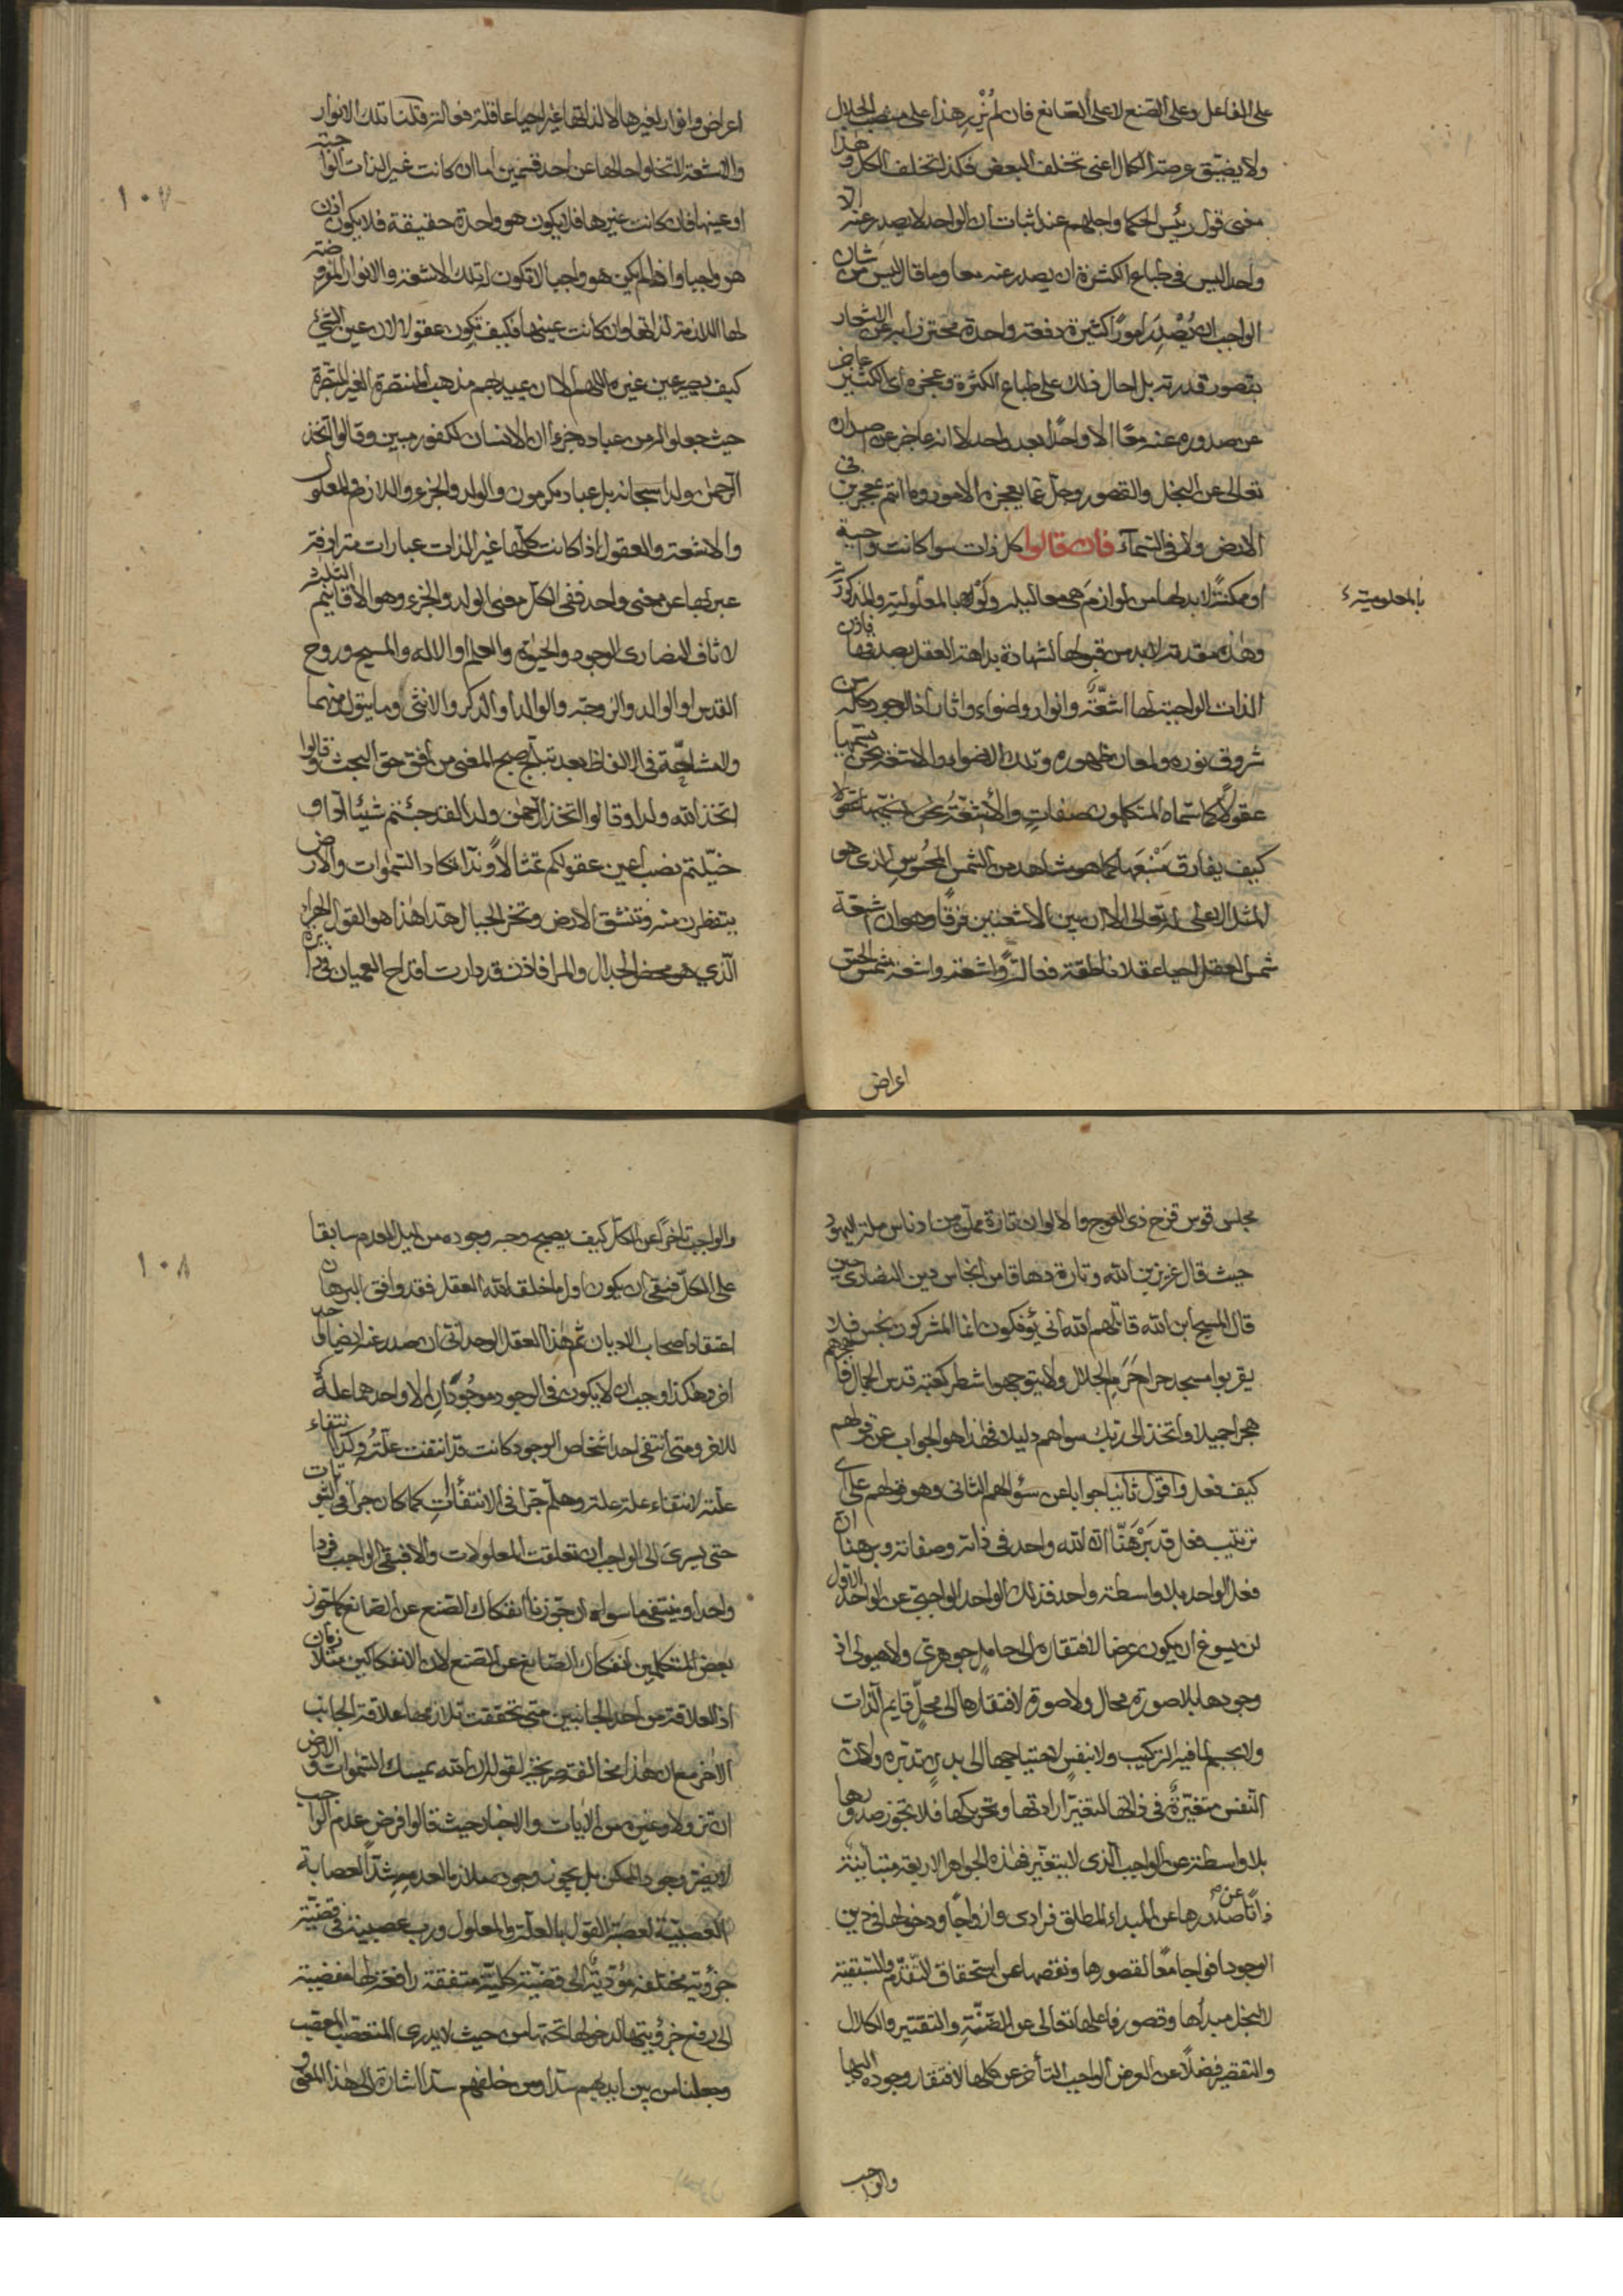 على الفاعل وعلى الصنع لا على الصانع فان لم يُزْرِ هذا على منصب الجلال
ولا يضيّق عرصة الكمال اعنى تخلف البعض فكذا تخلف الكل وهذا
معنى قول رئيس الحكما واجلهم عند اثبات ان الواحد لا يصدر عنه الا
واحد ليس فى طباع الكثرة ان يصدر عنه معا وما قال ليس من شان
الواجب ان يُصْدِرَ امورًا كثيرة دفعة واحدة محترزا به عن الاشعار
بقصور قدرته بل احال ذلك على طباع الكثرة وعجزه اى الكثير عاجز
عن صدوره عنه معًا الا واحدًا بعد واحد لا انه عاجز عن اصداره
تعالى عن البخل والقصور وجلّ عما يعجزه الامور وما انتم بمعجزين فى
الارض ولا فى السّمآء فان قالوا كل ذات سوا كانت واجبة
او ممكنةً لا بد لها من لوازمَ هى معاليله وَلَوْ لا بالمعلولية والمذكورة
بالمعلومية
وهذه مقدمة لا بد من قبولها لشهادة بداهة العقل بصدقها فاذن
الذات الواجبة لها اشعّةٌ وانوار واضواء واثار اذ الوجود كله من
شروق نوره ولمعان ظهوره وتلك الاضواء والاشعة نحن نسميها
عقولًا كما سمّاه المتكلمون صفاتٍ والأشعّةُ نحن نسمّيها عقولا
كيف يفارق مَنْبَعها كما هو مشاهد من الشمس المحسوس الذى هو
المثل الاعلى له تعالى الا ان بين الاشعتين فرقًا وهو ان اشعة
شمس العقل احيا عقلا ناطقة فعالةً واشعة شمس الحس
اعراض
اعراض وانوار لغيرها لا لذاتها غير احيا عاقلة فعالة قلنا تلك الانوار
والاشعة لا تخلوا حالها عن احد قسمين اما ان كانت غير الذات الواجبة
او عينها فان كانت غيرها فلا يكون هو واحدة حقيقة فلا يكون اذن
هو واجبا واذا لم يكن هو واجبا لا تكون تلك الاشعة والانوار المفروضة
لها اللازمة لذاتها وان كانت عينها فكيف تكون عقولا لان عين الشئ
كيف يصير عين غيره اللهم الا ان يعيد بهم مذهب المنتصرة الغير المتبصرة
حيث جعلوا له من عباده جزءا ان الانسان لكفور مبين وقالوا اتخذ
الرحمن ولدا سبحانه بل عباد مكرمون والولد والجزء واللازم والمعلول
والاشعة والعقول اذا كانت كلها غير الذات عبارات مترادفة
عبر بها عن معنى واحد ففى الكل معنى الولد والجزء وهو الاقانيم الثلثة
لاثاف النصارى الوجود والحيوة والعلم او الاله والمسيح وروح
القدس او الوالد والزوجة والولد او الذكر والانثى وما يتولد منهما
والمشاحّة فى الالفاظ بعد تبلّج صبح المعنى من افق حق البحث وقالوا
اتخذ الله ولدا وقالوا اتخذ الرحمن ولدا لقد جئتم شيئا ادّا او
خيّلتم نصب اعين عقولكم تمثالًا وندّا تكاد السّموات والارض
يتفطرن منه وتنشق الارض وتخر الجبال هدّا هذا هو القول الهراء
الّذي هو محض الجدال والمرا فاذن قد دارت اقداح العميان فى دائرة
١٠٧
مجلس قوس قزح ذى العوج والالوان تارة مملوة من ادناس ملة اليهود
حيث قال عزير بن الله وتارة دهاقا من انجاس دين النصارى حين
قال المسيح ابن الله قاتلهم الله انى يؤفكون انما المشركون نجس فلا
يقربوا مسجد حرام حَرَم الجلال ولا يتوجهوا شطر كعبة قدس الجمال فاهجرهم
هجرا جميلا واتخذ الى ربك سواهم دليلا فهذا هو الجواب عن قولهم
كيف فعل واقول ثانيا جوابا عن سؤالهم الثانى وهو قولهم على اى
ترتيب فعل قد بَرْهَنّا ان الله واحد فى ذاته وصفاته وبرهنا ان
فعل الواحد بلا واسطة واحد فذلك الواحد الواجبى عن الواحد الاول
لن يسوغ ان يكون عرضا لافتقاره الى حامل جوهرى ولا هيولى اذ
وجودها بلا صورة محال ولا صورة لافتقارها الى محلّ قايم الذات
ولا جسم لما فيه التركيب ولا نفسٍ لاحتياجها الى بدنٍ تدبّره ولان
النفس متغيّرةٌ فى ذاتها لتغير ارادتها وتحريكها فلا يجوز صدورها
بلا واسطة عن الواجب الّذى لا يتغيّر فهذه الجواهر الاربعة متباينة
ذاتًا صدورها عن المبداء المطلق فرادى وازواجًا ودخولها فى دين
الوجود افواجا معًا لقصورها ونقصها عن استحقاق التقدّم والسّبقية
لا لبخل مبدأها وقصور فاعلها تعالى عن الضنّة والتقتير والكلال
والتقصير فضلًا عن العرض الواجب التأخر عن كلها لافتقار وجوده اليها
والواجب
والواجب تاخرًا عن الكلّ كيف يصح وجه وجوده من اجل العدم سابقا
على الكلّ فبقى ان يكون اول ما خلق الله العقل فقد وافق البرهان
اعتقاد اصحاب الاديان ثم هذا العقل الوحدانى ان صدر عنه ايضا واحد
اخر وهكذا وجب ان لا يكون فى الوجود موجُودَانِ الا واحدهما علةٌ
للاخر ومتى انتفى احد اشخاص الوجود كانت قد انتفت علّتُه وكذا انتفاء
علته لانتفاء علة علته وهلّم جرّا فى الانتفاآت كما كان جرا فى الثبوتات
حتى يسرى الى الواجب ان تعلقت المعلولات والا فبقى الواجب فردا
واحدا وينتفى ما سواه ان جوزنا انفكاك الصنع عن الصانع كما جوز
بعض المتكلمين انفكاك الصانع عن الصنع لان الانفكاكين متلازمان
اذ العلاقة من احد الجانبين متى تحققت تلازمها علاقة الجانب
الآخر مع ان هذا مخالفة صريحة لقوله ان الله يمسك السّموات والارض
ان تزولا وغيره من الايات والاخبار حيث قالوا فرض عدم الواجب
لا يضرّ وجود الممكن بل يجوز وجوده ملازما لعدمه شدّا لعصابة
العصبيّة لعصبة القول بالعلّة والمعلول ورب عصبية فى قضيّة
جزؤية مختلفة مؤدّيةٌ الى قضيّة كليّة متفقة رافعة لها مفضية
الى رفع جزؤيتها لدخولها تحتها من حيث لا يدرى المتعصب المعصّب
وجعلنا من بين ايديهم سدّا ومن خلفهم سدّا اشارة الى هذا المعنى و
١٠٨